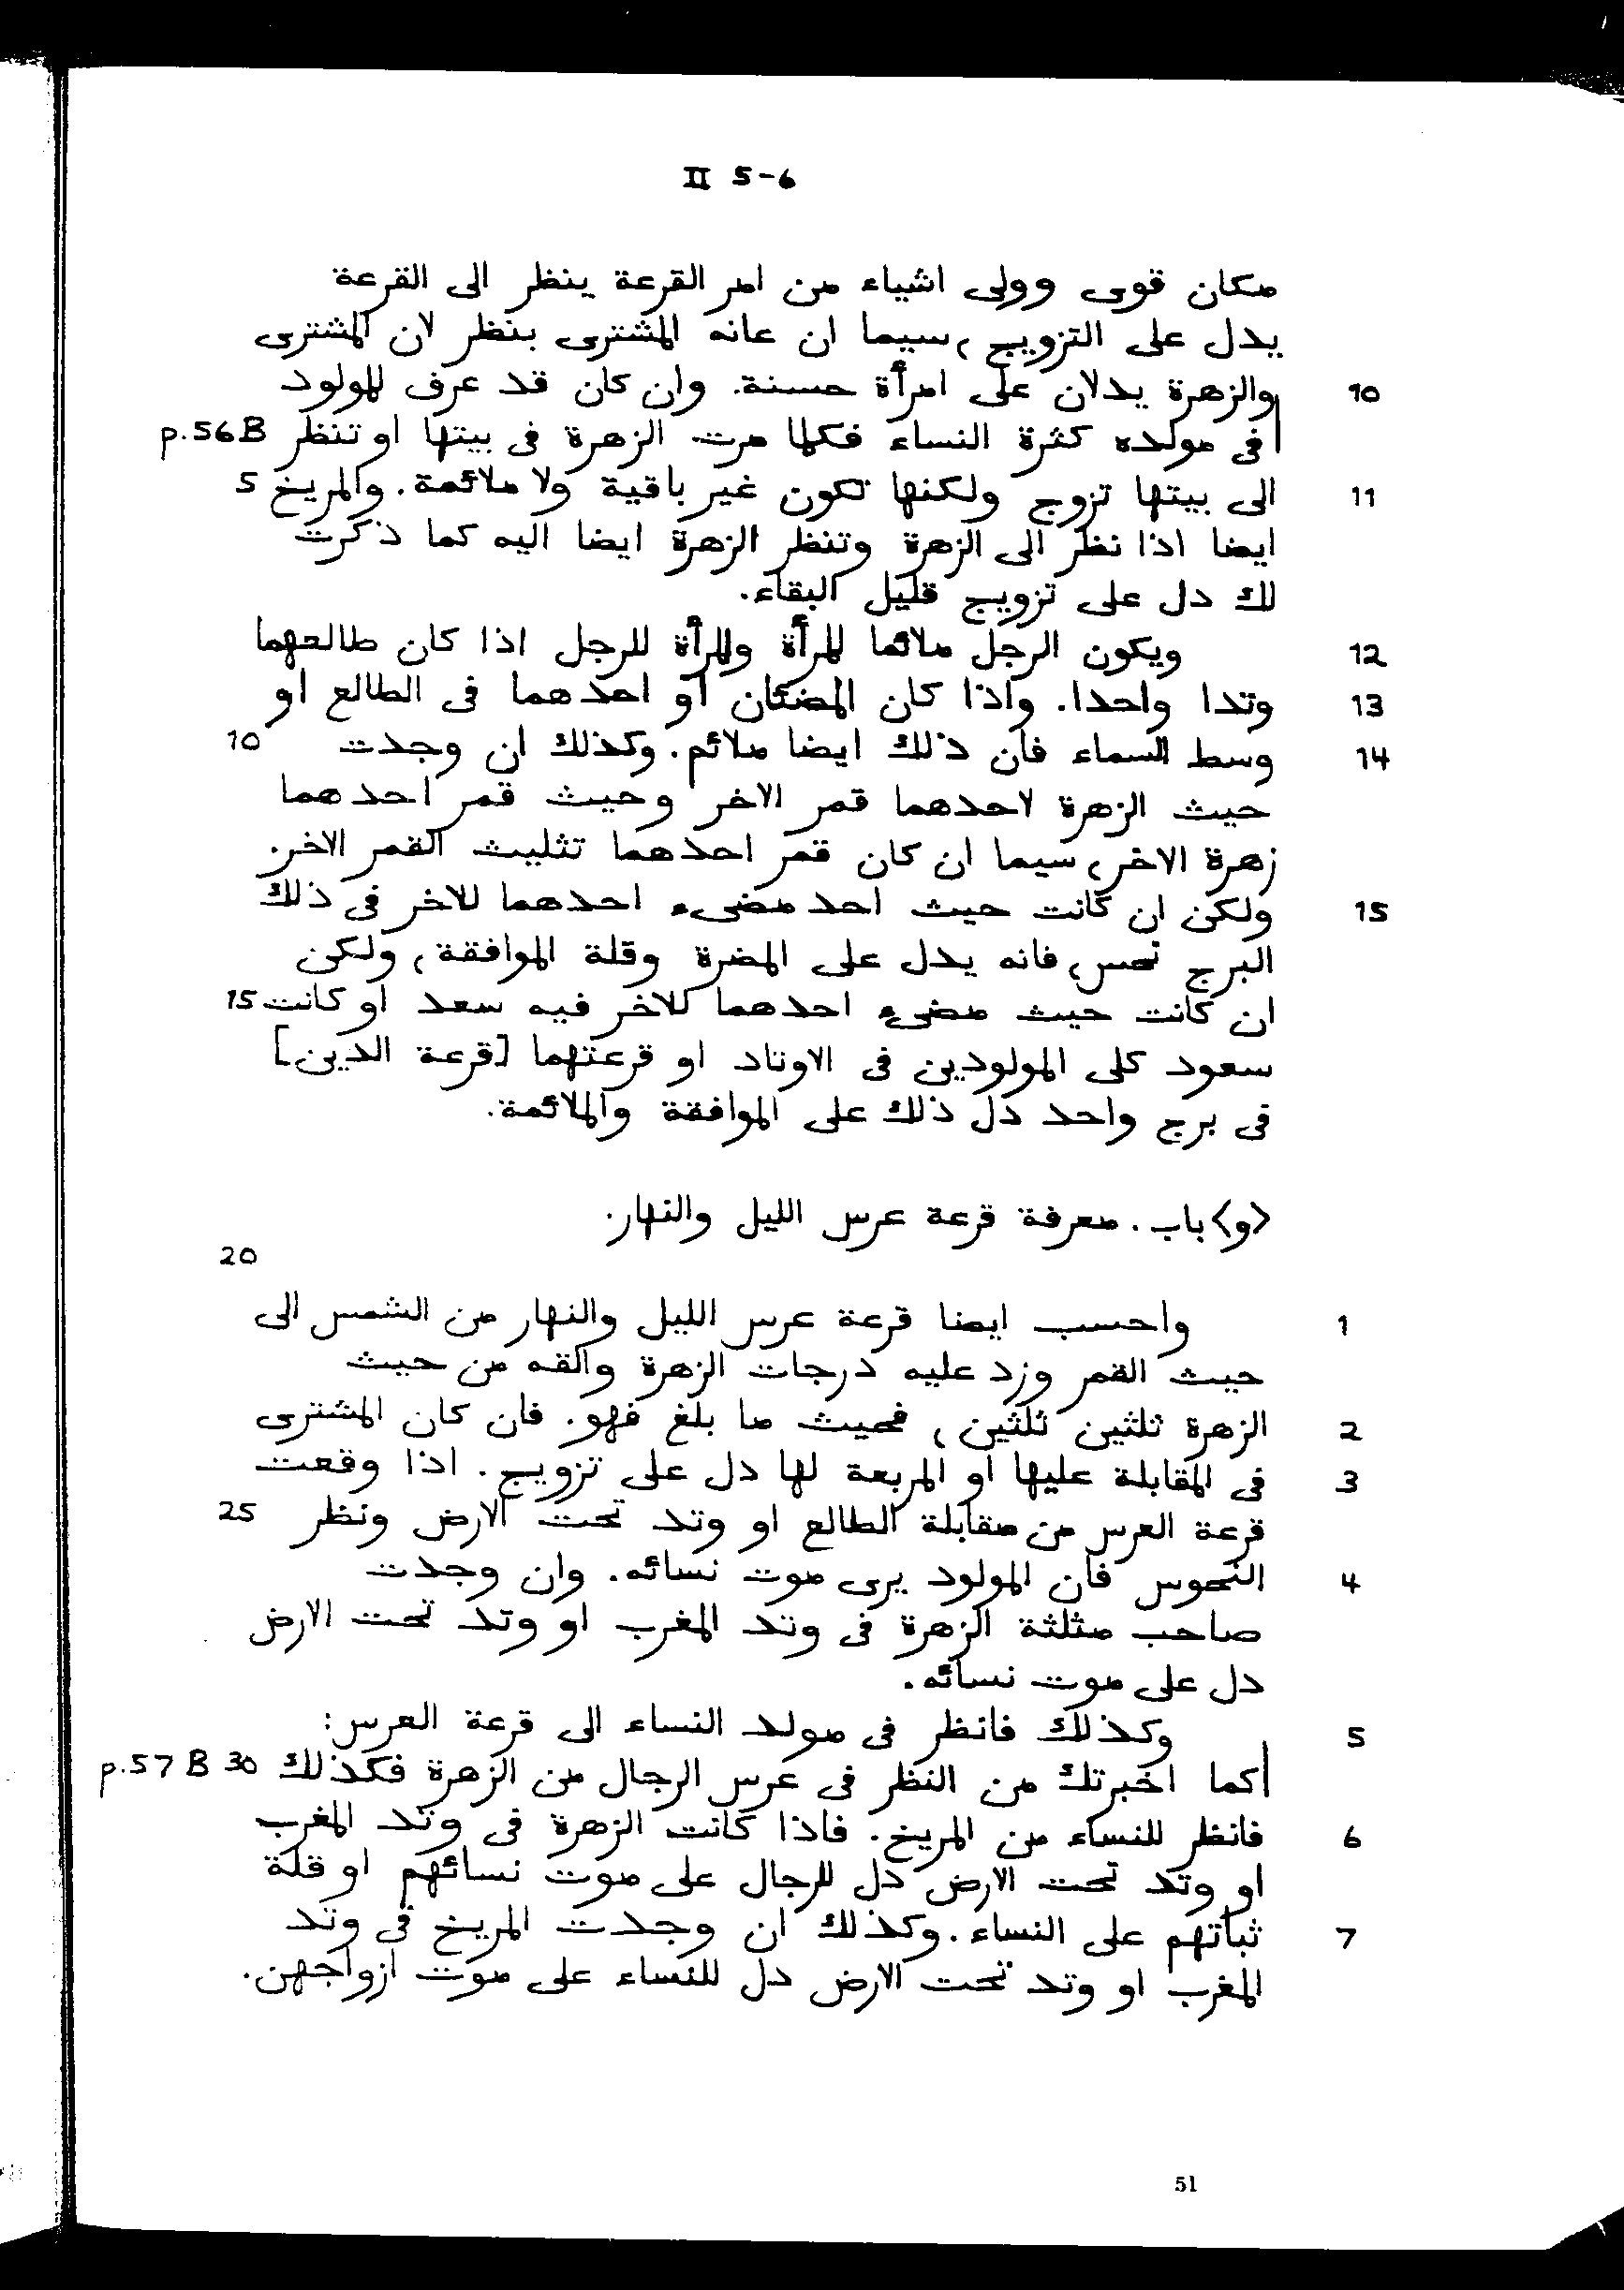 II 5-6
مكان قوى وولى اشياء من امر القرعة ينظر الى القرعة
يدل على التزويج، سيما ان عانه المشترى بنظر لان المشترى
10 والزهرة يدلان على امرأة حسنة. وان كان قد عرف للمولود
|فى مولده كثرة النساء فكلما مرت الزهرة فى بيتها او تنظر p.56B
11 الى بيتها تزوج ولكنها تكون غير باقية ولا ملائمة. والمريخ 5
ايضا اذا نظر الى الزهرة وتنظر الزهرة ايضا اليه كما ذكرت
لك دل على تزويج قليل البقاء.
12 ويكون الرجل ملائما للمرأة وللمرأة للرجل اذا كان طالعهما
13 وتدا واحدا. واذا كان المضئان او احدهما فى الطالع او
14 وسط السماء فان ذلك ايضا ملائم. وكذلك ان وجدت 10
حيث الزهرة لاحدهما قمر الاخر وحيث قمر احدهما
زهرة الاخر، سيما ان كان قمر احدهما تثليث القمر الاخر.
15 ولكن ان كانت حيث احد مضىء احدهما للاخر فى ذلك
البرج نحس، فانه يدل على المضرة وقلة الموافقة، ولكن
ان كانت حيث مضىء احدهما للاخر فيه سعد او كانت 15
سعود كلى المولودين فى الاوتاد او قرعتهما [قرعة الدين]
فى برج واحد دل ذلك على الموافقة والملائمة.
<و> باب. معرفة قرعة عرس الليل والنهار.
20
1 واحسب ايضا قرعة عرس الليل والنهار من الشمس الى
حيث القمر وزد عليه درجات الزهرة والقه من حيث
2 الزهرة ثلثين ثلثين، فحيث ما بلغ فهو. فان كان المشترى
3 فى المقابلة عليها او المربعة لها دل على تزويج. اذا وقعت
قرعة العرس من مقابلة الطالع او وتد تحت الارض ونظر 25
4 النحوس فان المولود يرى موت نسائه. وان وجدت
صاحب مثلثة الزهرة فى وتد المغرب او وتد تحت الارض
دل على موت نسائه.
5 وكذلك فانظر فى مولد النساء الى قرعة العرس:
|كما اخبرتك من النظر فى عرس الرجال من الزهرة فكذلك 30 p.57 B
6 فانظر للنساء من المريخ. فاذا كانت الزهرة فى وتد المغرب
او وتد تحت الارض دل للرجال على موت نسائهم او قلة
7 ثباتهم على النساء. وكذلك ان وجدت المريخ فى وتد
المغرب او وتد تحت الارض دل للنساء على موت ازواجهن.
51